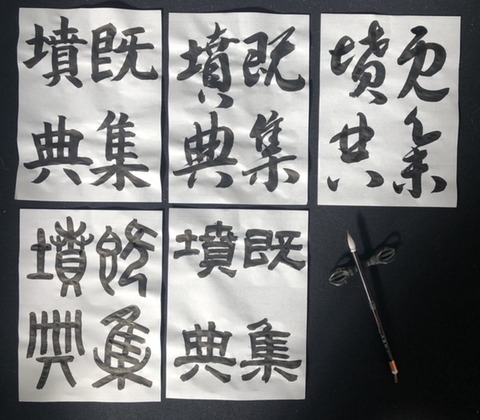 既集
墳典
既集
墳典
既集
墳典
既集
墳典
既集
墳典